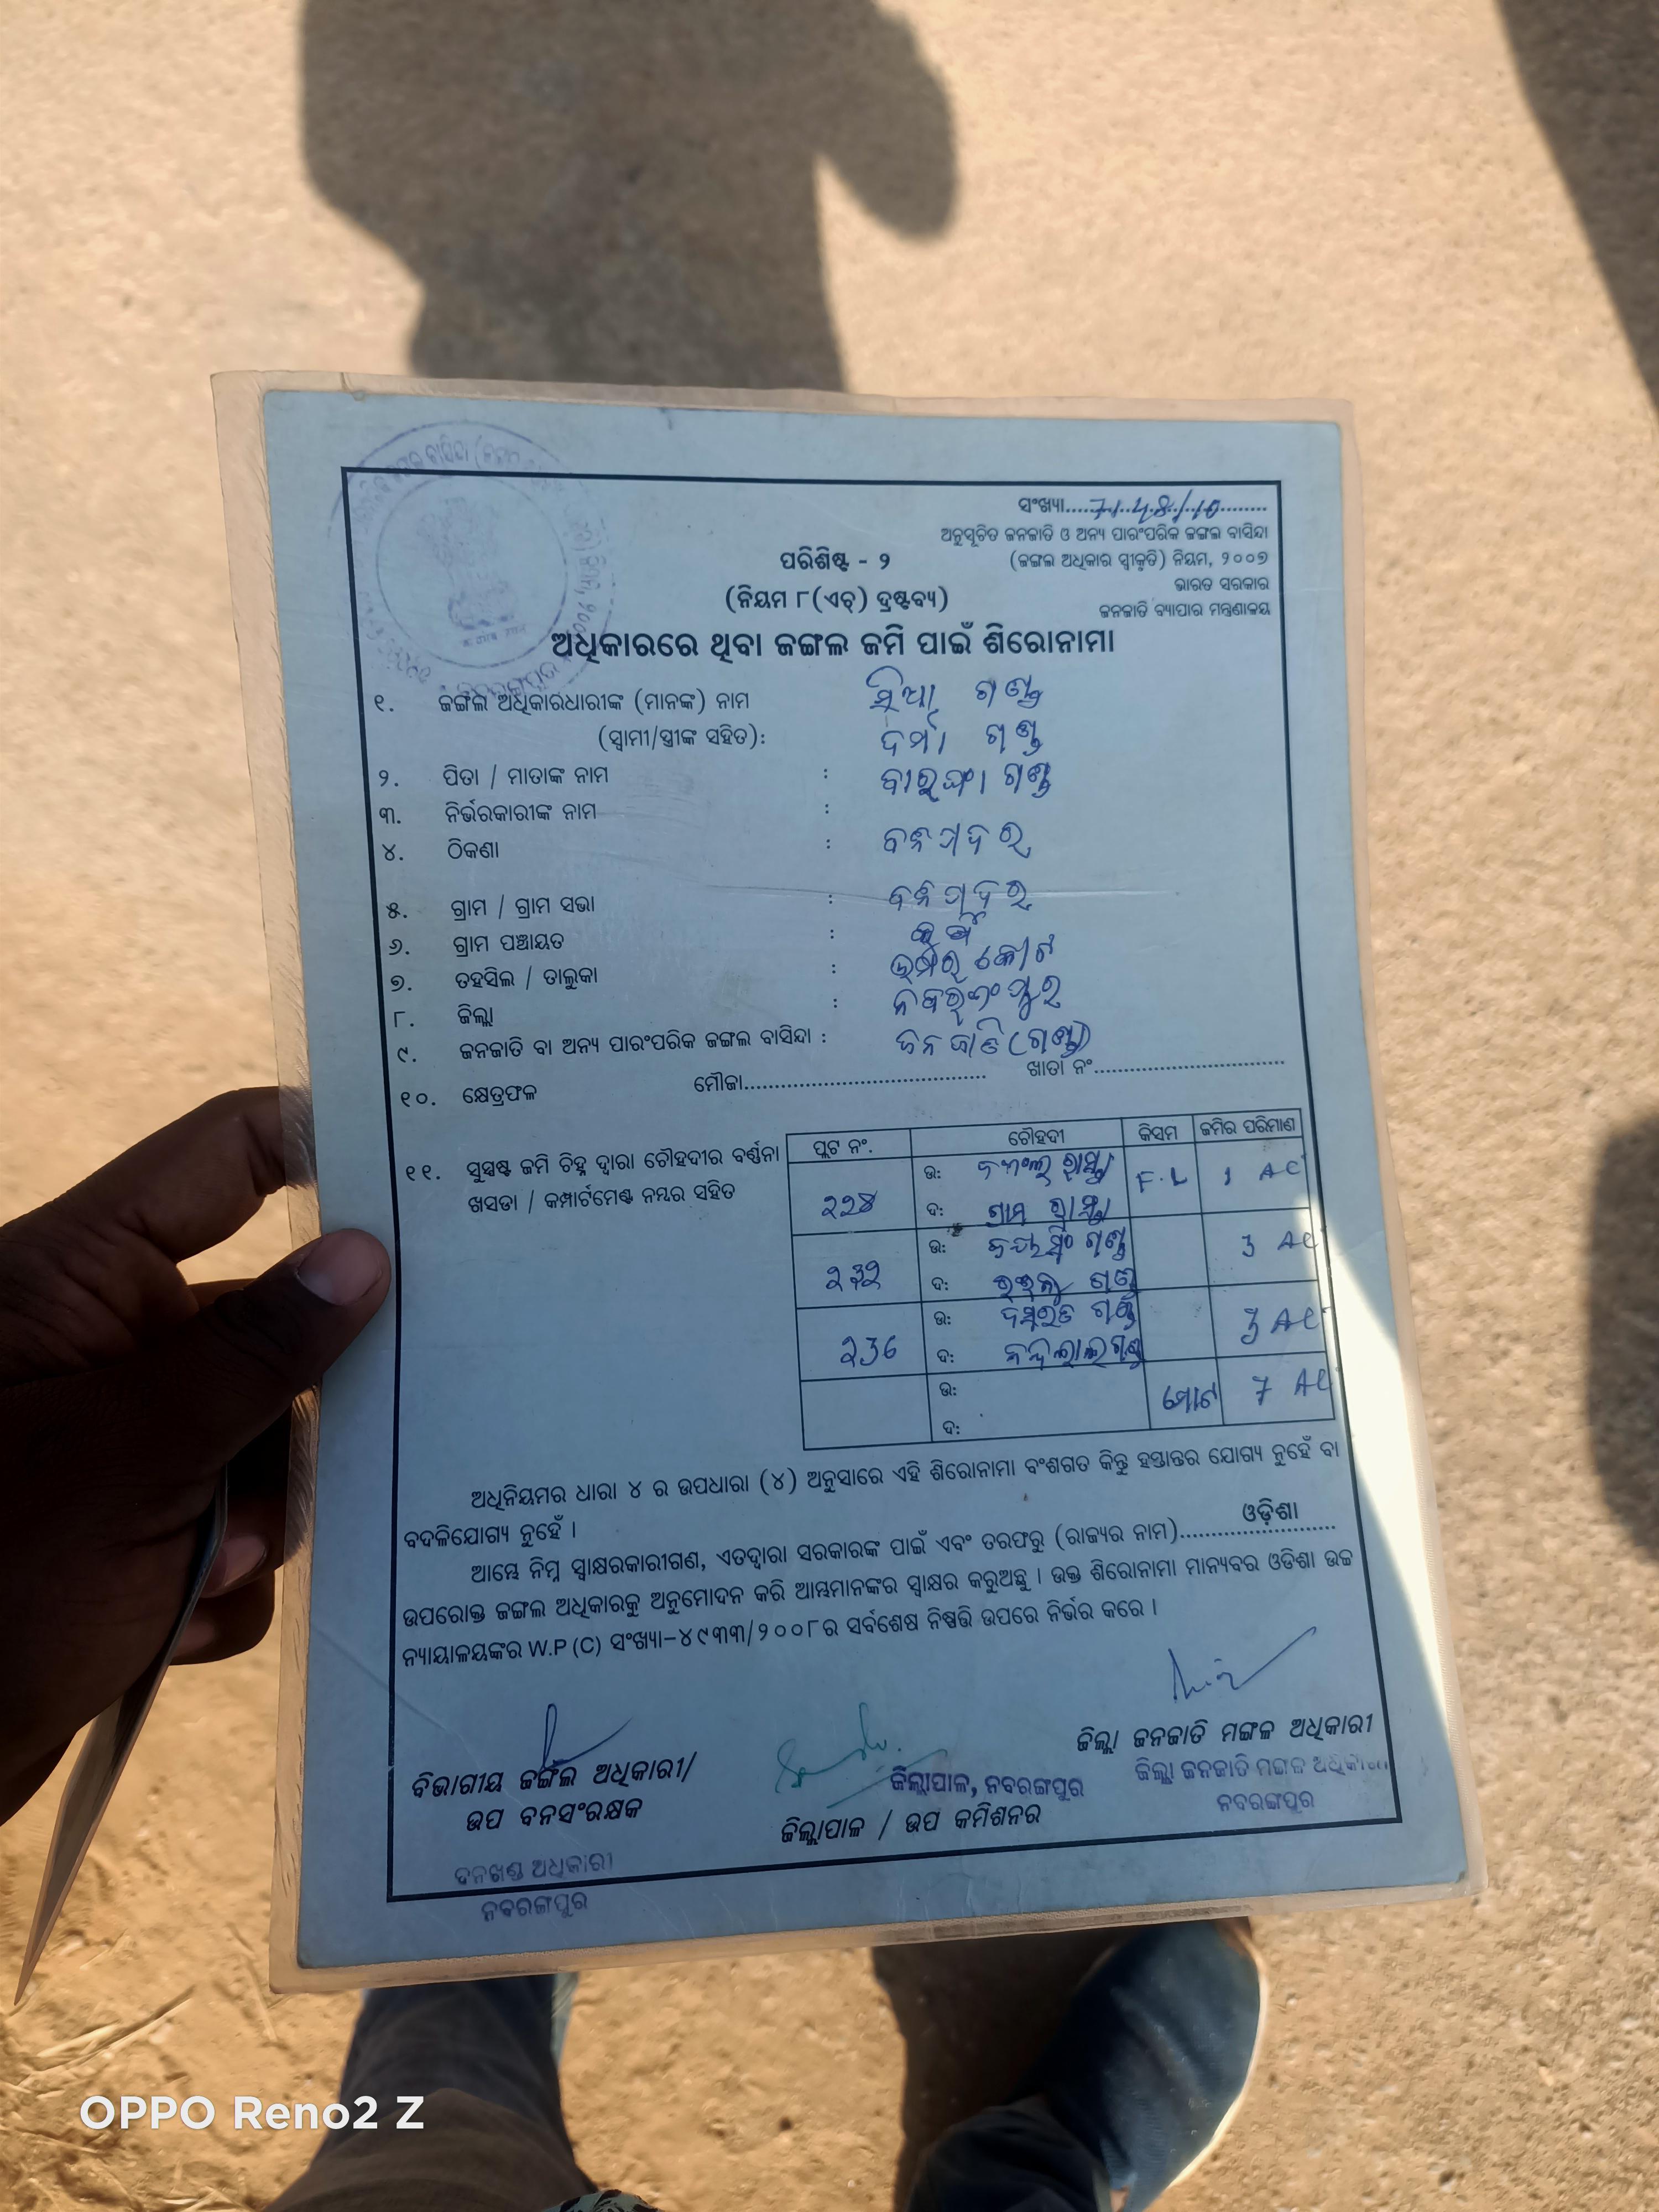 ସଂଖ୍ୟା.....7148/10........
ଅନୁସୂଚିତ ଜନଜାତି ଓ ଅନ୍ୟ ପାରଂପରିକ ଜଙ୍ଗଲ ବାସିନ୍ଦା
(ଜଙ୍ଗଲ ଅଧିକାର ସ୍ୱୀକୃତି) ନିୟମ, ୨୦୦୭
ଭାରତ ସରକାର
ଜନଜାତି ବ୍ୟାପାର ମନ୍ତ୍ରଣାଳୟ
ପରିଶିଷ୍ଟ - ୨
(ନିୟମ ୮(ଏଚ୍) ଦ୍ରଷ୍ଟବ୍ୟ)
ଅଧିକାରରେ ଥିବା ଜଙ୍ଗଲ ଜମି ପାଇଁ ଶିରୋନାମା
୧. ଜଙ୍ଗଲ ଅଧିକାରଧାରୀଙ୍କ (ମାନଙ୍କ) ନାମ ଗଣ୍ଡ
(ସ୍ୱାମୀ/ସ୍ତ୍ରୀଙ୍କ ସହିତ): ଦର୍ମା ଗଣ୍ଡ
୨. ପିତା / ମାତାଙ୍କ ନାମ : ଗଣ୍ଡ
୩. ନିର୍ଭରକାରୀଙ୍କ ନାମ :
୪. ଠିକଣା :
୫. ଗ୍ରାମ / ଗ୍ରାମ ସଭା :
୬. ଗ୍ରାମ ପଞ୍ଚାୟତ :
୭. ତହସିଲ / ତାଲୁକା : ଉମରକୋଟ
୮. ଜିଲ୍ଲା : ନବରଂଗପୁର
୯. ଜନଜାତି ବା ଅନ୍ୟ ପାରଂପରିକ ଜଙ୍ଗଲ ବାସିନ୍ଦା : ଜନଜାତି (ଗଣ୍ଡ)
୧୦. କ୍ଷେତ୍ରଫଳ ମୌଜା........................ ଖାତା ନଂ........................
୧୧. ସୁସ୍ପଷ୍ଟ ଜମି ଚିହ୍ନ ଦ୍ୱାରା ଚୌହଦୀର ବର୍ଣ୍ଣନା
ଖସଡା / କମ୍ପାର୍ଟମେଣ୍ଟ ନମ୍ବର ସହିତ
ପ୍ଲଟ ନଂ. ଚୌହଦୀ କିସମ ଜମିର ପରିମାଣ
ଉ: ଜଂଗଲ ରାସ୍ତା F.L 1 AC
228 ଦ: ଗ୍ରାମ ରାସ୍ତା
ଉ: ଜୟସିଂ ଗଣ୍ଡ 3 AC
232 ଦ: ଗଣ୍ଡ
ଉ: ଦସରତ ଗଣ୍ଡ 3 AC
236 ଦ: ନନ୍ଦିଲାଲ ଗଣ୍ଡ
ଉ: ମୋଟ 7 AC
ଦ:
ଅଧିନିୟମର ଧାରା ୪ ର ଉପଧାରା (୪) ଅନୁସାରେ ଏହି ଶିରୋନାମା ବଂଶଗତ କିନ୍ତୁ ହସ୍ତାନ୍ତର ଯୋଗ୍ୟ ନୁହେଁ ବା
ବଦଳିଯୋଗ୍ୟ ନୁହେଁ ।
ଆମ୍ଭେ ନିମ୍ନ ସ୍ୱାକ୍ଷରକାରୀଗଣ, ଏତଦ୍ୱାରା ସରକାରଙ୍କ ପାଇଁ ଏବଂ ତରଫରୁ (ରାଜ୍ୟର ନାମ)......ଓଡ଼ିଶା......
ଉପରୋକ୍ତ ଜଙ୍ଗଲ ଅଧିକାରକୁ ଅନୁମୋଦନ କରି ଆମ୍ଭମାନଙ୍କର ସ୍ୱାକ୍ଷର କରୁଅଛୁ । ଉକ୍ତ ଶିରୋନାମା ମାନ୍ୟବର ଓଡିଶା ଉଚ୍ଚ
ନ୍ୟାୟାଳୟଙ୍କର W.P (C) ସଂଖ୍ୟା-୪୯୩୩/୨୦୦୮ର ସର୍ବଶେଷ ନିଷ୍ପତ୍ତି ଉପରେ ନିର୍ଭର କରେ ।
ବିଭାଗୀୟ ଜଙ୍ଗଲ ଅଧିକାରୀ/
ଉପ ବନସଂରକ୍ଷକ
ବନଖଣ୍ଡ ଅଧିକାରୀ
ନବରଙ୍ଗପୁର
ଜିଲ୍ଲାପାଳ, ନବରଙ୍ଗପୁର
ଜିଲ୍ଲାପାଳ / ଉପ କମିଶନର
ଜିଲ୍ଲା ଜନଜାତି ମଙ୍ଗଳ ଅଧିକାରୀ
ଜିଲ୍ଲା ଜନଜାତି ମଙ୍ଗଳ ଅଧିକାରୀ
ନବରଙ୍ଗପୁର
OPPO Reno2 Z